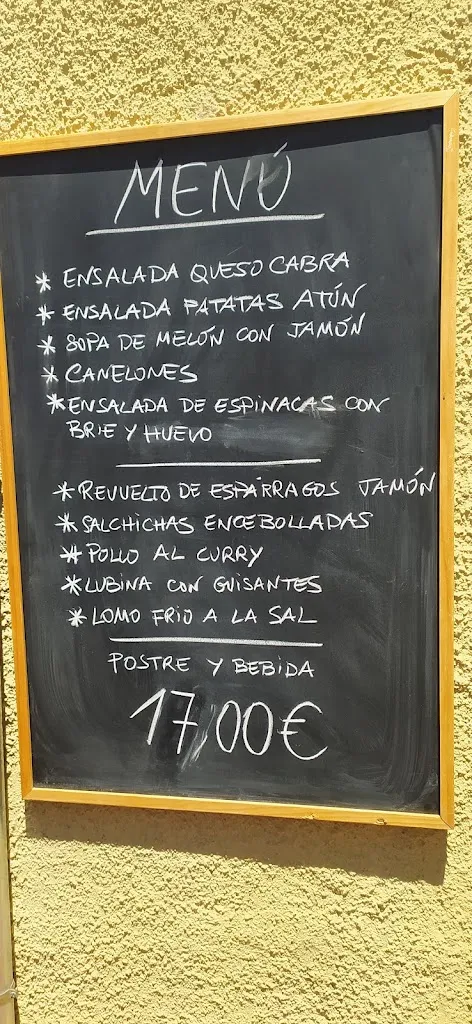 MENÚ
* ENSALADA QUESO CABRA
* ENSALADA PATATAS ATÚN
* SOPA DE MELÓN CON JAMÓN
* CANELONES
* ENSALADA DE ESPINACAS CON
BRIE Y HUEVO
* REVUELTO DE ESPÁRRAGOS JAMÓN
* SALCHICHAS ENCEBOLLADAS
* POLLO AL CURRY
* LUBINA CON GUISANTES
* LOMO FRIO A LA SAL
POSTRE Y BEBIDA
17,00€